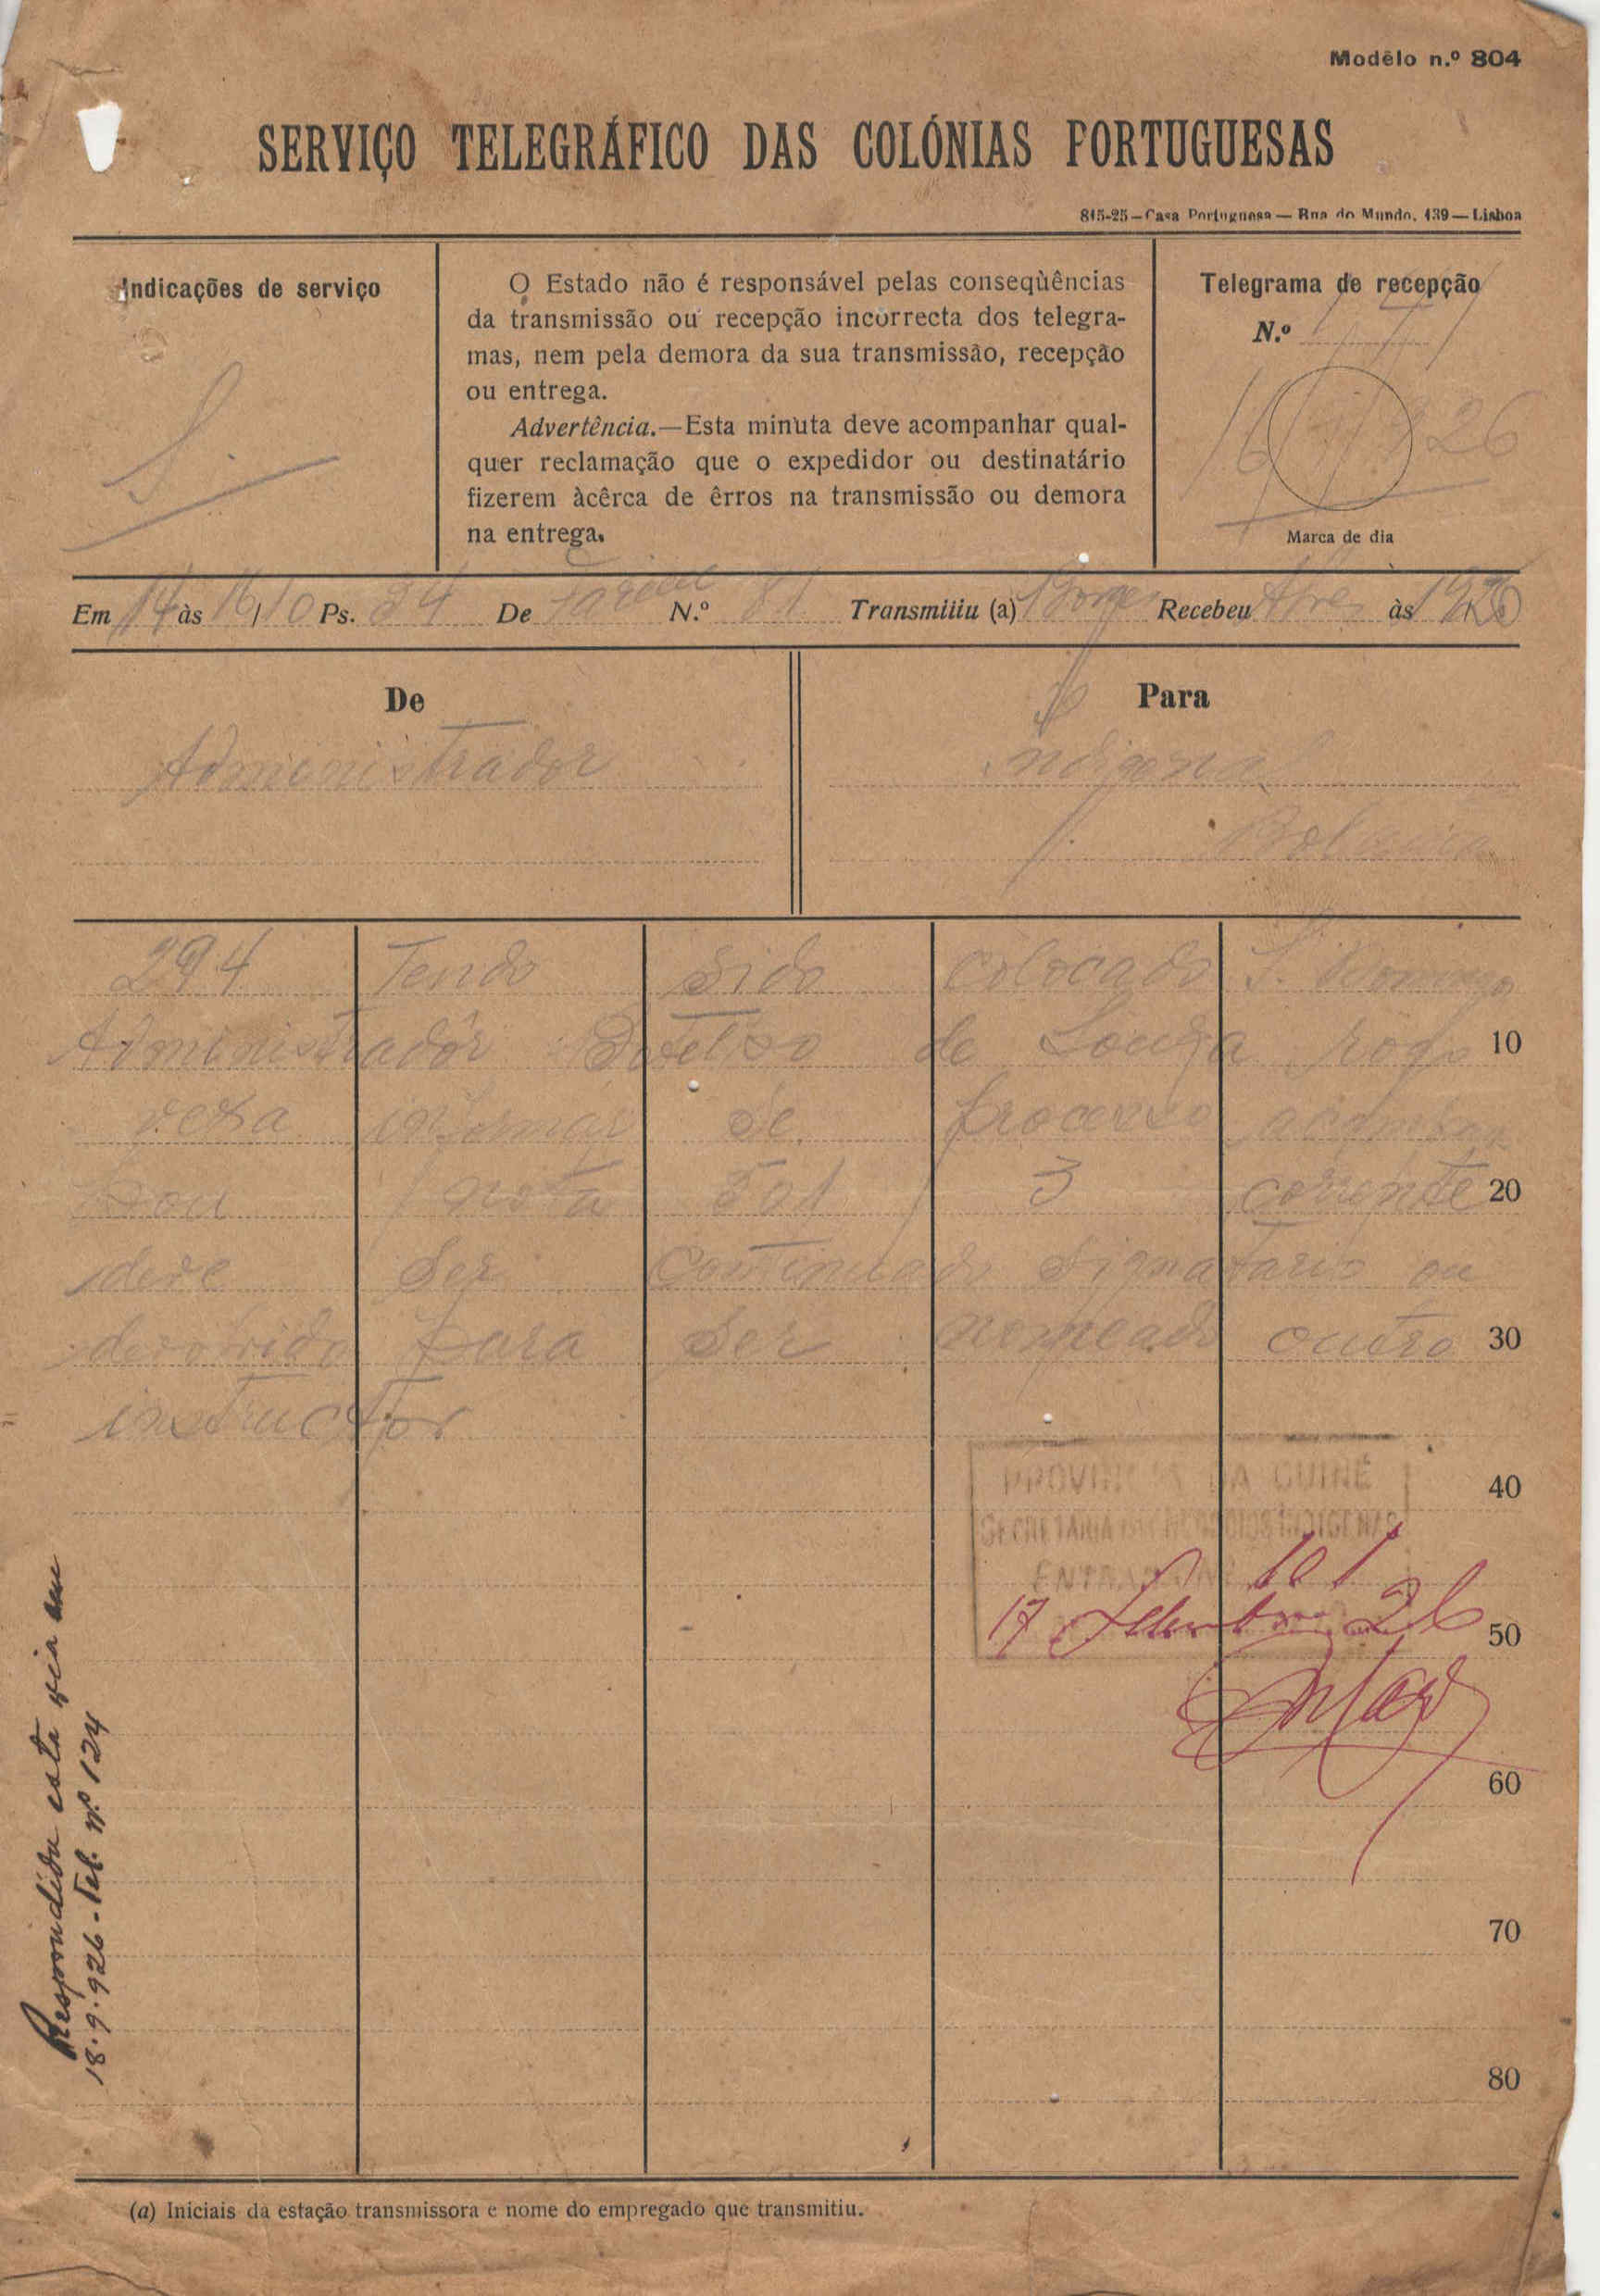 Modêlo n.º 804
SERVIÇO TELEGRÁFICO DAS COLÓNIAS PORTUGUESAS
815-25—Casa Portuguesa—Rua do Mundo, 139—Lisboa
Indicações de serviço
S.
O Estado não é responsável pelas conseqùências
da transmissão ou recepção incorrecta dos telegra-
mas, nem pela demora da sua transmissão, recepção
ou entrega.
Advertência.—Esta minuta deve acompanhar qual-
quer reclamação que o expedidor ou destinatário
fizerem àcêrca de êrros na transmissão ou demora
na entrega.
Telegrama de recepção
N.º
16/9/926
Marca de dia
Em 14 às 16/10 Ps. 34 De N.º 81 Transmitiu (a) Borges Recebeu Alves às
De
Administrador
Para
Indigena
Bolama
294 Tendo sido colocado S. Domingos
Administradôr Botelho de Souza rogo
vexa informar se processo acompan
hou nota 501 3 corrente
deve ser continuado signatario ou
devolvido para ser nomeado outro
instructor
10
20
30
40
50
60
70
80
PROVINCIA DA GUINÉ
SECRETARIA DOS NEGOCIOS INDIGENAS
ENTRADA N.º 101
17 Setembro 26
Respondida esta via em
18-9-926-Tel. nº 124
(a) Iniciais da estação transmissora e nome do empregado que transmitiu.